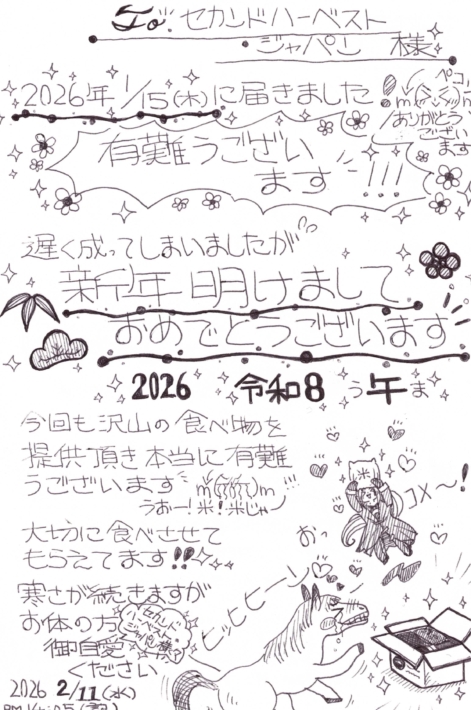 To. セカンドハーベスト
・ジャパン 様
2026年 1/15(木)に届きました
ペコ!
m(_ _)m
ありがとう
ござい
ます
有難うござい
ます !!!
遅く成ってしまいましたが
新年明けまして
おめでとうございます
2026 令和8 う午ま
今回も沢山の食べ物を
提供頂き本当に有難
うございます m(_ _)m
うおー!米!米じゃ
米
コメ〜!
おっ
大切に食べさせて
もらえてます!!
寒さが続きますが
お体の方
セカンド
ハーベスト
ジャパン様
御自愛
ください
ヒッヒヒーン
2026 2/11(水)